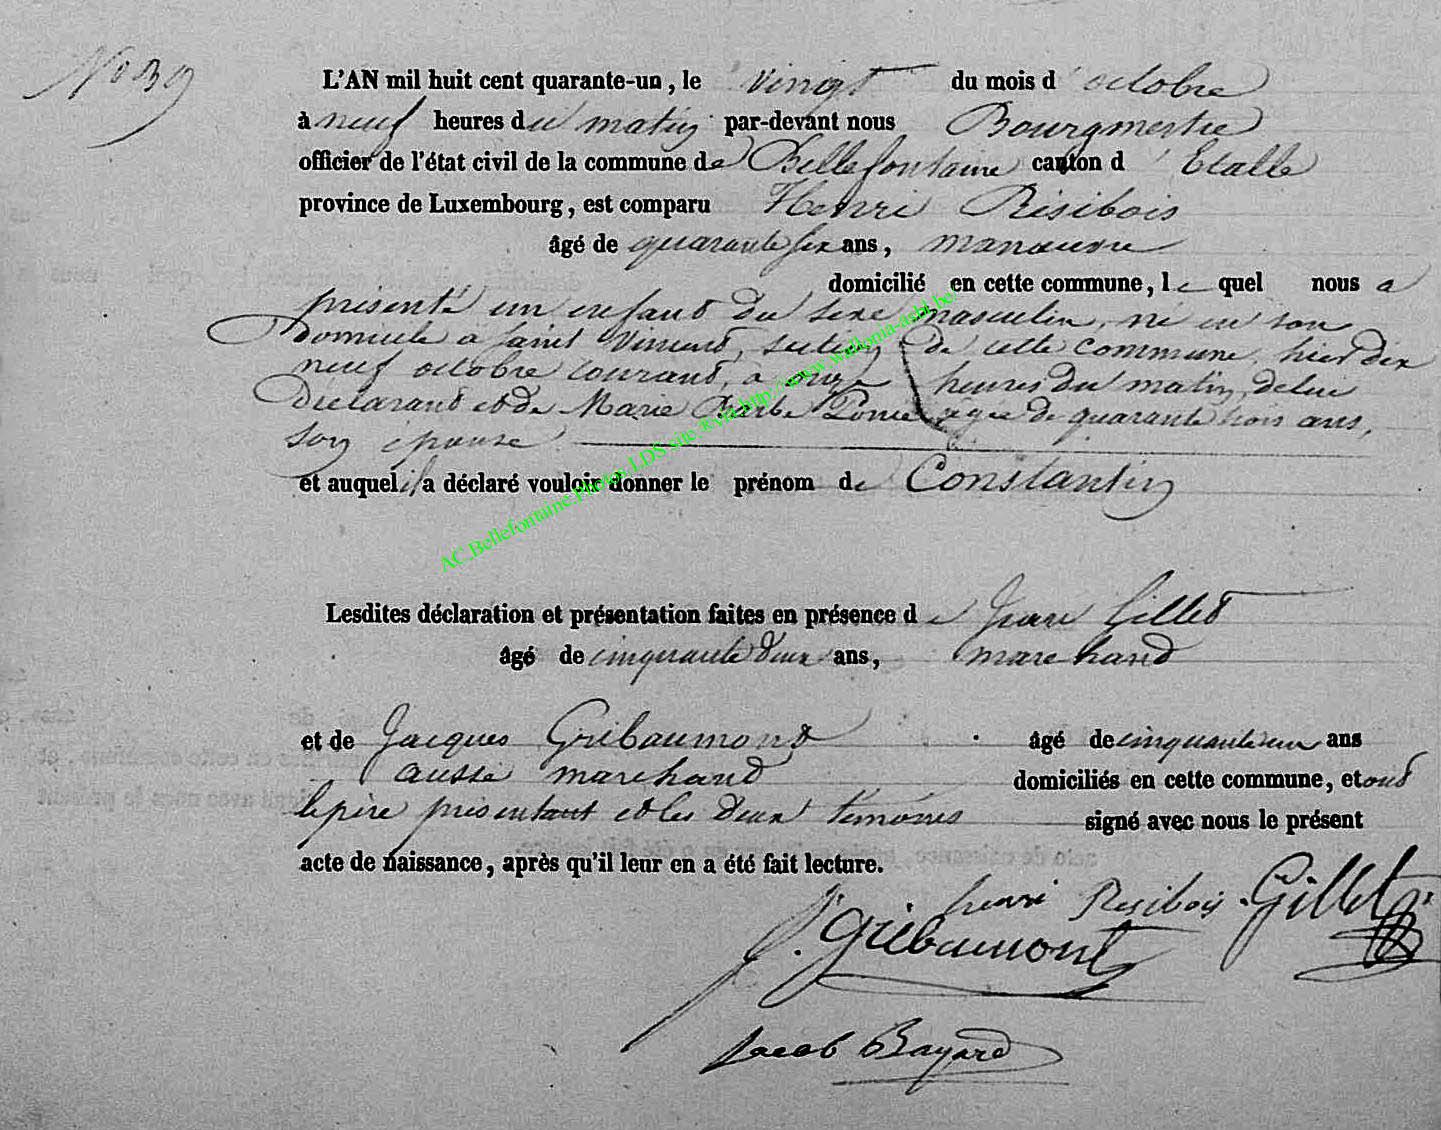 N° 39
L'AN mil huit cent quarante-un, le vingt du mois d'octobre
à neuf heures du matin par-devant nous Bourgmestre
officier de l'état civil de la commune de Bellefontaine canton d'Etalle
province de Luxembourg, est comparu Henri Résibois
âgé de quarante six ans, manœuvre
domicilié en cette commune, lequel nous a
présenté un enfant du sexe masculin, né en son
domicile à Saint Vincent, section de cette commune, hier dix
neuf octobre courant, à onze heures du matin, de lui
Déclarant et de Marie Barbe agée de quarante trois ans,
son épouse
et auquel il a déclaré vouloir donner le prénom de Constantin
Lesdites déclaration et présentation faites en présence de Jean Gillet
âgé de cinquante deux ans, marchand
et de Jacques Gribaumont âgé de cinquante un ans
aussi marchand domiciliés en cette commune, et ont
le père présentant et les deux témoins signé avec nous le présent
acte de naissance, après qu'il leur en a été fait lecture.
henri Resibois Gillet
J. Gribaumont
Jacob Bayard
AC.Bellefontaine.Photos LDS site KVIA http://www.wallonia-asbl.be